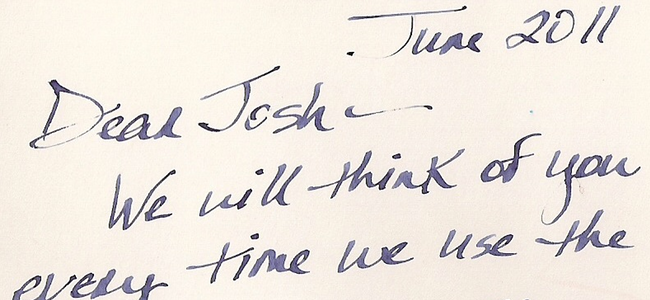 June 2011
Dear Josh —
We will think of you
every time we use the